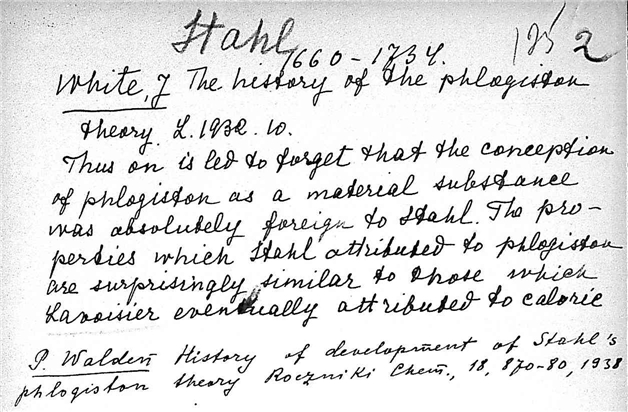 Stahl 125 2
1660-1734.
White, J The history of the phlogiston
theory. L. 1932. 10.
Thus on is led to forget that the conception
of phlogiston as a material substance
was absolutely foreign to Stahl. The pro-
perties which Stahl attributed to phlogiston
are surprisingly similar to those which
Lavoisier eventually attributed to caloric
P. Walden History of development of Stahl's
phlogiston theory Roczniki Chem., 18, 870-80, 1938